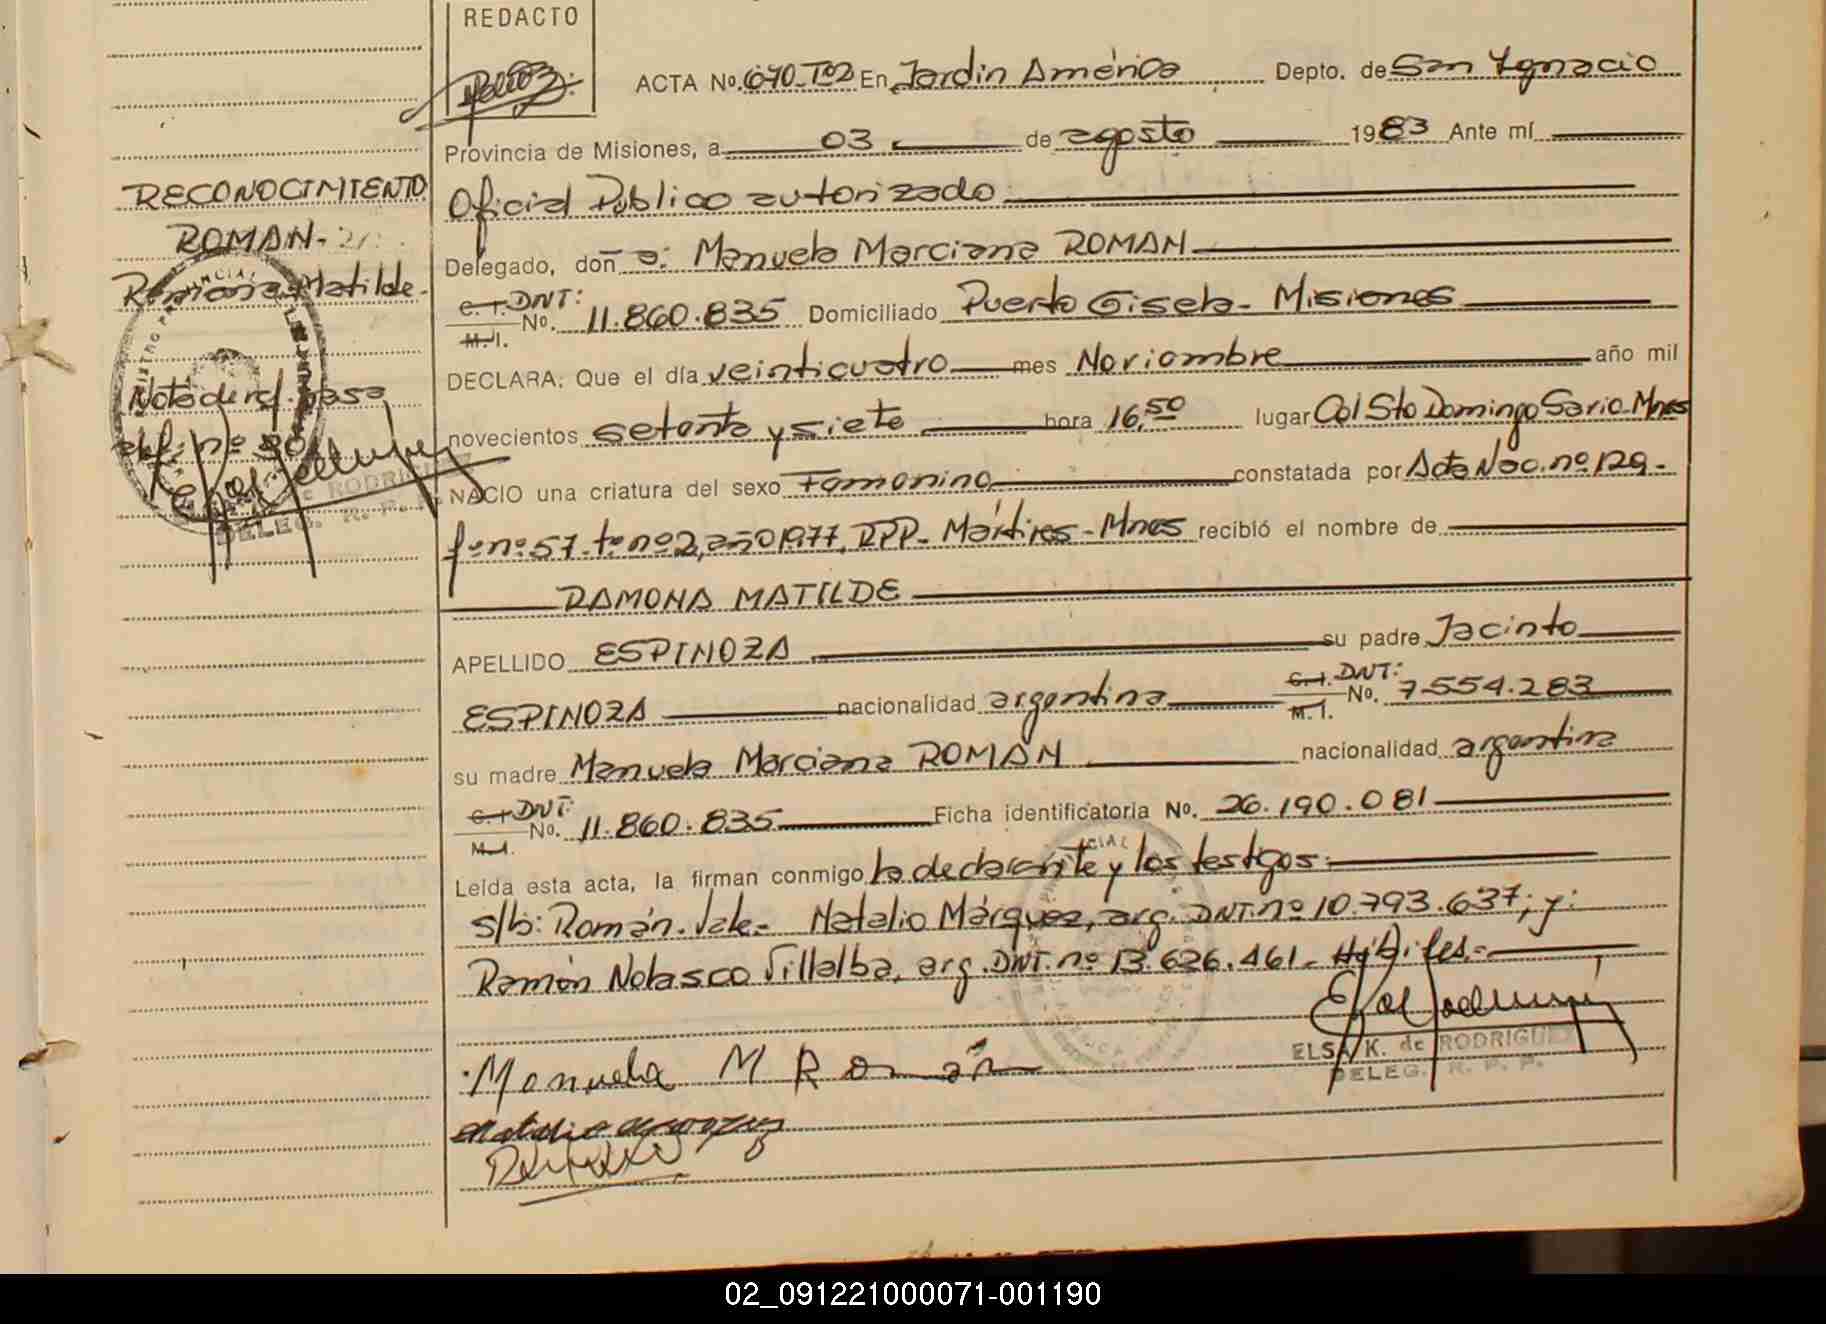 REDACTO
ACTA No. 670-Tº2 En Jardin América Depto. de San Ignacio
Provincia de Misiones, a 03 de agosto 1983 Ante mí
Oficial Público autorizado
Delegado, don a: Manuela Marciana ROMAN
C.I. DNI:
M.I. No. 11.860.835 Domiciliado Puerto Gisela - Misiones
DECLARA: Que el día veinticuatro mes Noviembre año mil
novecientos setenta y siete hora 16,50 lugar Col Sto Domingo Savio-Mnes
NACIO una criatura del sexo Femenino constatada por Acta Nac. nº 129-
fº nº 57-tº nº 2, año 1977, RPP- Mártires - Mnes recibió el nombre de
RAMONA MATILDE
APELLIDO ESPINOZA su padre Jacinto
ESPINOZA nacionalidad argentina C.I. DNI: M.I. No. 7.554.283
su madre Manuela Marciana ROMAN nacionalidad argentina
C.I. DNI:
M.I. No. 11.860.835 Ficha identificatoria No. 26.190.081
Leída esta acta, la firman conmigo la declarante y los testigos:
s/b: Román. Vale- Natalio Márquez, arg. DNI. nº 10.793.637; y:
Ramón Nolasco Villalba, arg. DNI. nº 13.626.461- Hábiles.-
Manuela M Román
ELSA K. de RODRIGUEZ
DELEG. R. P. P.
RECONOCIMIENTO
ROMAN-
Ramona Matilde-
Nota de ref. pasa
nº 30
de RODRIGUEZ
DELEG. R. P. P.
02_091221000071-001190